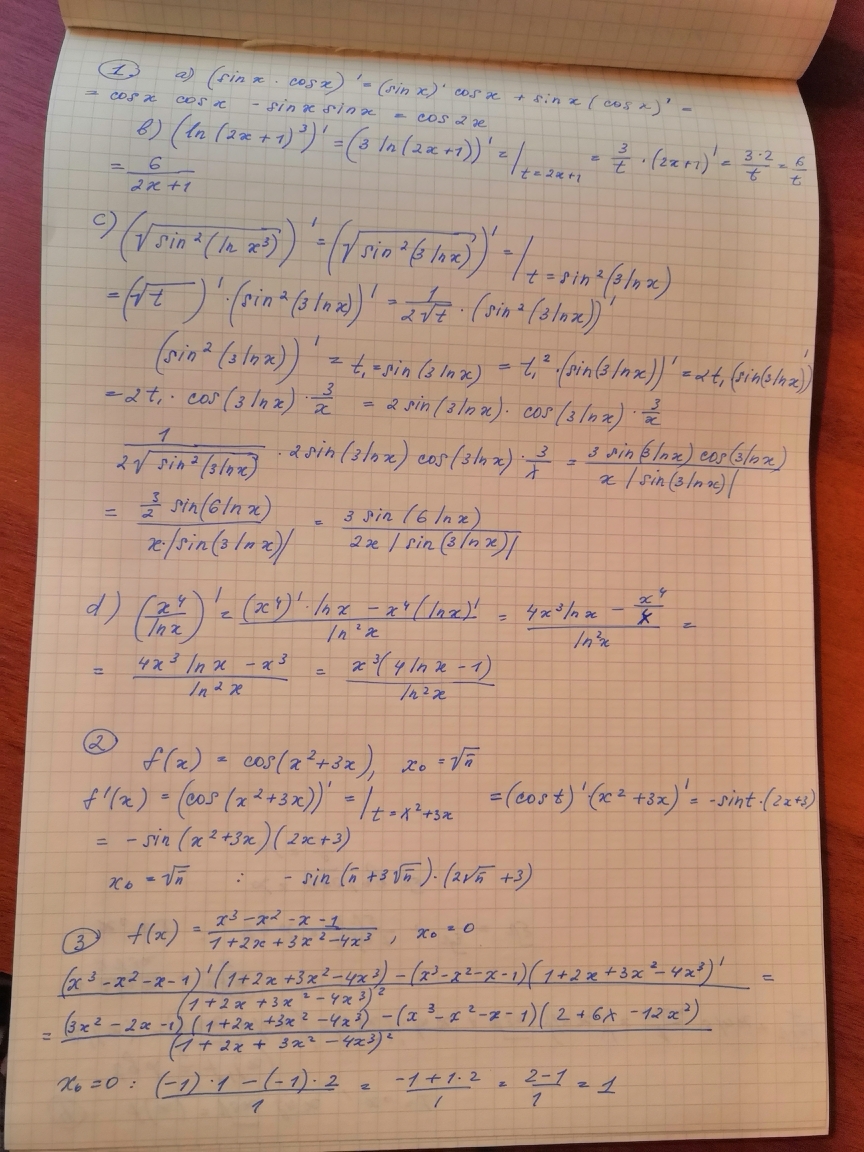 ① a) (sin x · cos x)' = (sin x)' cos x + sin x (cos x)' =
= cos x cos x - sin x sin x = cos 2x
b) (ln (2x+1)^3)' = (3 ln(2x+1))' = |_{t=2x+1} = 3/t · (2x+1)' = 3·2/t = 6/t
= 6/(2x+1)
c) (√(sin^2(ln x^3)))' = (√(sin^2(3 ln x)))' = |_{t = sin^2(3 ln x)}
= (√t)' · (sin^2(3 ln x))' = 1/(2√t) · (sin^2(3 ln x))'
(sin^2(3 ln x))' = t_1 = sin(3 ln x) = t_1^2 · (sin(3 ln x))' = 2t_1 (sin(3 ln x))'
= 2t_1 · cos(3 ln x) · 3/x = 2 sin(3 ln x) · cos(3 ln x) · 3/x
1/(2√(sin^2(3 ln x))) · 2 sin(3 ln x) cos(3 ln x) · 3/x = (3 sin(3 ln x) cos(3 ln x))/(x |sin(3 ln x)|)
= (3/2 sin(6 ln x))/(x·|sin(3 ln x)|) = (3 sin(6 ln x))/(2x |sin(3 ln x)|)
d) (x^4/ln x)' = ((x^4)' · ln x - x^4 (ln x)')/(ln^2 x) = (4x^3 ln x - x^4/x)/(ln^2 x) =
= (4x^3 ln x - x^3)/(ln^2 x) = (x^3(4 ln x - 1))/(ln^2 x)
② f(x) = cos(x^2+3x), x_0 = √π
f'(x) = (cos(x^2+3x))' = |_{t = x^2+3x} = (cos t)' · (x^2+3x)' = -sin t · (2x+3)
= - sin(x^2+3x)(2x+3)
x_0 = √π : - sin(π+3√π)·(2√π+3)
③ f(x) = (x^3-x^2-x-1)/(1+2x+3x^2-4x^3), x_0 = 0
((x^3-x^2-x-1)'(1+2x+3x^2-4x^3) - (x^3-x^2-x-1)(1+2x+3x^2-4x^3)')/(1+2x+3x^2-4x^3)^2 =
= ((3x^2-2x-1)(1+2x+3x^2-4x^3) - (x^3-x^2-x-1)(2+6x-12x^2))/(1+2x+3x^2-4x^3)^2
x_0 = 0 : ((-1)·1 - (-1)·2)/1 = (-1+1·2)/1 = (2-1)/1 = 1